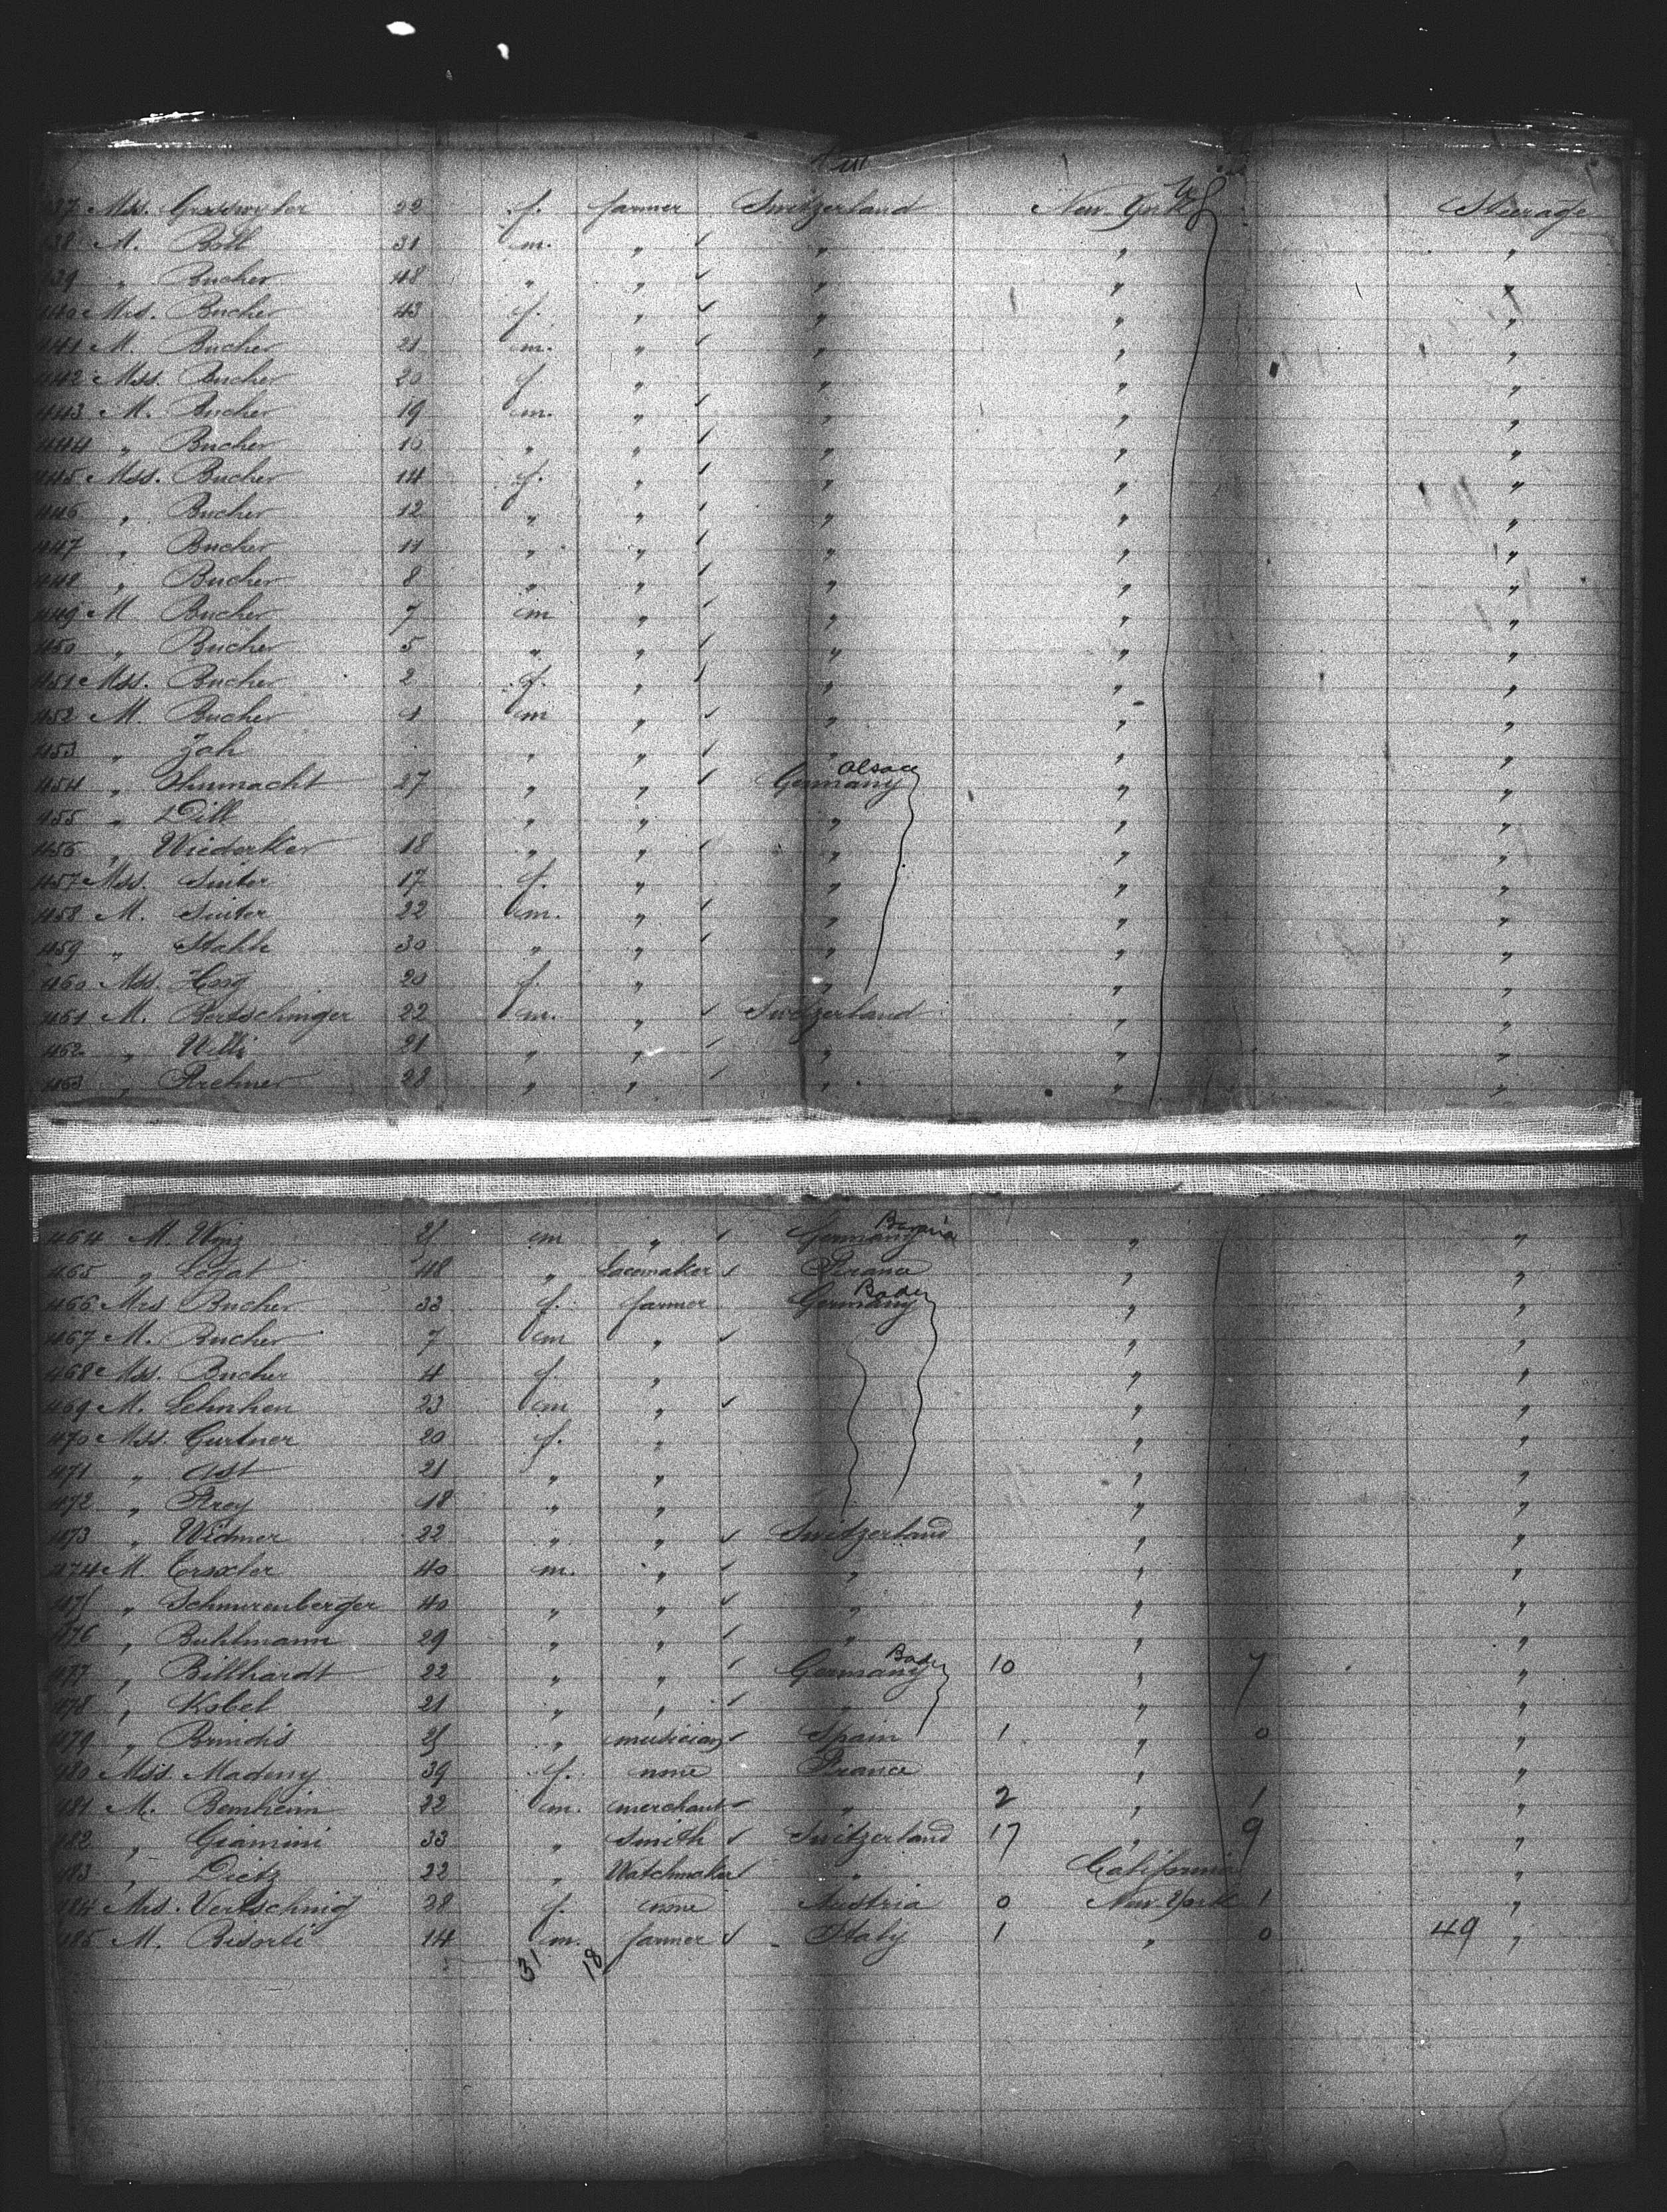 437 Mss. Grossweiler 22 f. farmer Switzerland New York Steerage
438 M. Boll 31 m. " " " "
439 " Bucher 48 " " " " "
440 Mrs. Bucher 43 f. " " " "
441 M. Bucher 21 m. " " " "
442 Mss. Bucher 20 f. " " " "
443 M. Bucher 19 m. " " " "
444 " Bucher " " " " "
445 Mss. Bucher 14 f. " " " "
446 " Bucher 12 " " " " "
447 " Bucher 11 " " " " "
448 " Bucher 8 " " " " "
449 M Bucher 7 m " " " "
450 " Bucher 5 " " " " "
451 Mss. Bucher 2 f. " " " "
452 M. Bucher 1 m " " " "
453 " " " " " "
454 " 27 " " Germany Alsace " "
455 " Dill " " " " "
456 " Wiederker 18 " " " " "
457 Mss. Suiter 17 f. " " " "
458 M. Suiter 22 m. " " " "
459 " Stahle 30 " " " " "
460 Mss. Hug 20 f. " " " "
461 M. Bertschinger 22 m. " Switzerland " "
462 " Willi 21 " " " " "
463 " 28 " " " " "
464 M. Winz 25 m " Germany Bavaria " "
465 " Legat 48 " Lacemaker France " "
466 Mrs Bucher 33 f. farmer Germany Baden " "
467 M. Bucher 7 m " " "
468 Mss. Bucher 4 f. " " "
469 M. Lehnhen 23 m " " "
470 Mss. Gurtner 20 f. " " "
471 " Ast 21 " " " "
472 " Frey 18 " " " "
473 " Widmer 22 " " Switzerland " "
474 M. 40 m. " " " "
475 " Schnurenberger 40 " " " " "
476 " Buhlmann 29 " " " " "
477 " Billhardt 22 " " Germany Baden 10 " 7 "
478 " Kobel 21 " " " " "
479 " Brindis 25 " musician Spain 1 " 0 "
480 Mss Madeny 39 f. none France " "
481 M. Bernheim 22 m. merchant " 2 " 1 "
482 " Giamini 33 " Smith Switzerland 17 " 9 "
483 " Dietz 22 " Watchmaker " California "
484 Mrs. Vertschnig 38 f. none Austria 0 New York 1 "
485 M. Bisorti 14 m. farmer Italy 1 " 0 49 "
31 18